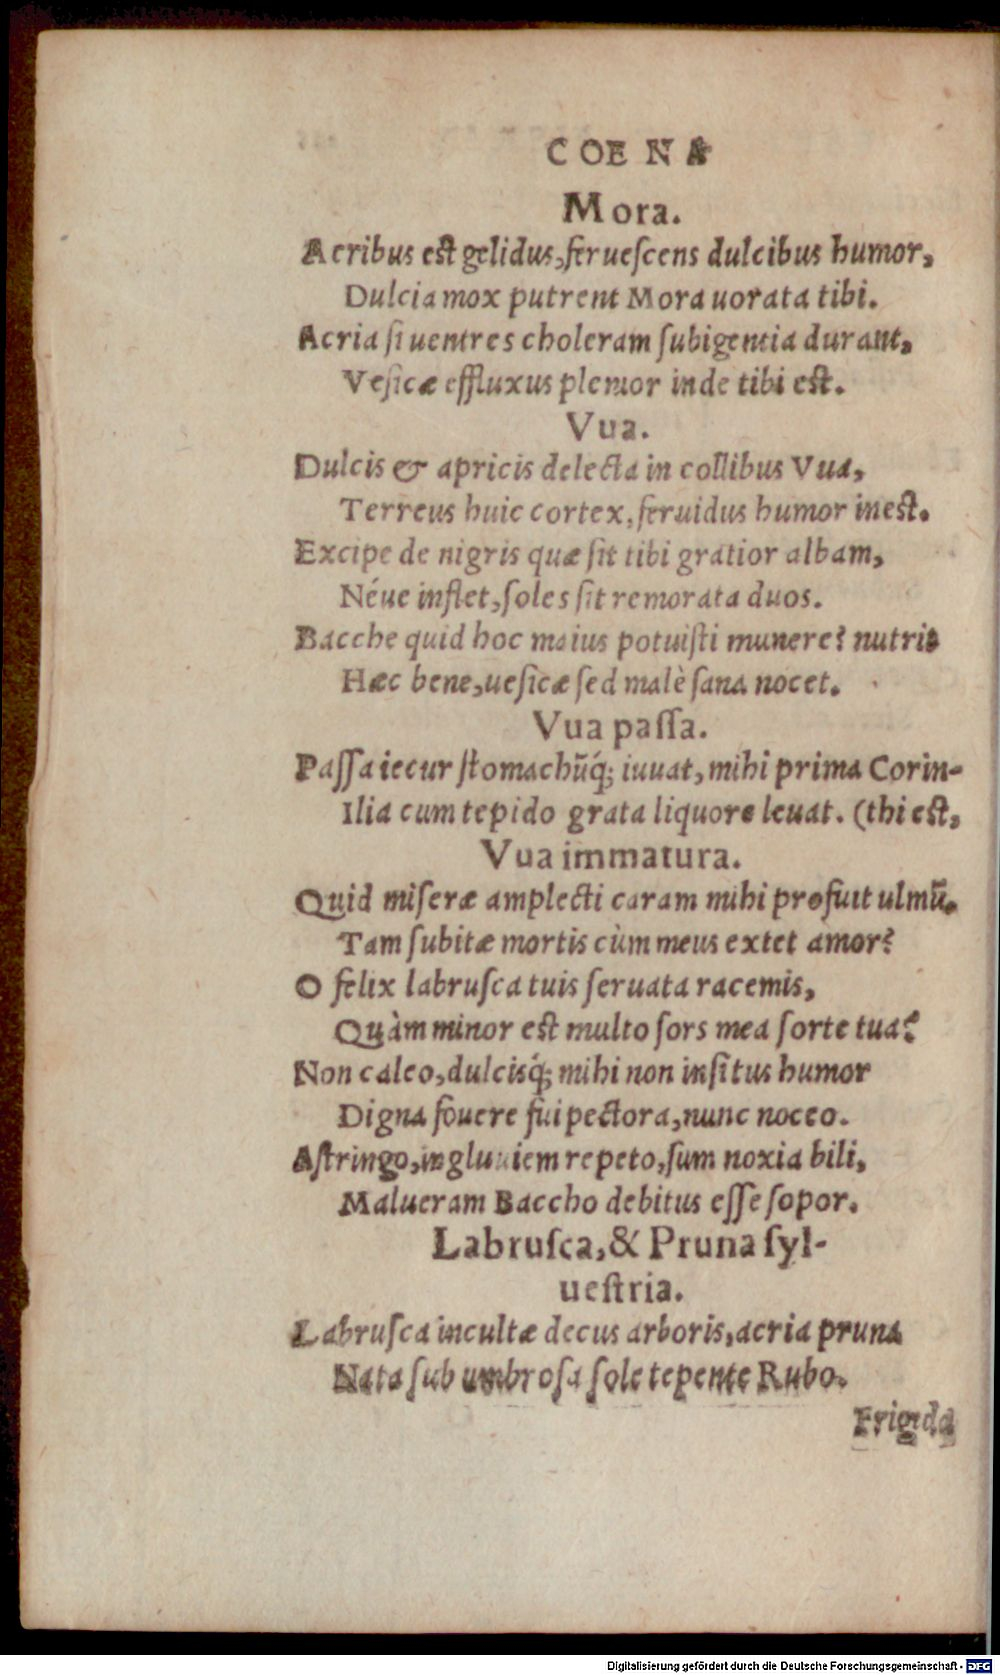 COENA
Mora.
Acribus est gelidus, feruescens dulcibus humor,
Dulcia mox putrent Mora uorata tibi.
Acria si uentres choleram subigentia durant,
Vesicæ effluxus plenior inde tibi est.
Vua.
Dulcis & apricis delecta in collibus Vua,
Terreus huic cortex, feruidus humor inest.
Excipe de nigris quæ sit tibi gratior albam,
Néue inflet, soles sit remorata duos.
Bacche quid hoc maius potuisti munere? nutrit
Hæc bene, uesicæ sed malè sana nocet.
Vua passa.
Passa iecur stomachũq́; iuuat, mihi prima Corin-
Ilia cum tepido grata liquore leuat. (thi est,
Vua immatura.
Quid miseræ amplecti caram mihi profuit ulmũ.
Tam subitæ mortis cùm meus extet amor?
O felix labrusca tuis seruata racemis,
Quàm minor est multo sors mea sorte tua?
Non caleo, dulcisq́; mihi non insitus humor
Digna fouere fui pectora, nunc noceo.
Astringo, ingluuiem repeto, sum noxia bili,
Malueram Baccho debitus esse sopor.
Labrusca, & Pruna syl-
uestria.
Labrusca incultæ decus arboris, acria pruna
Nata sub umbrosa sole tepente Rubo.
Frigida
Digitalisierung gefördert durch die Deutsche Forschungsgemeinschaft - DFG